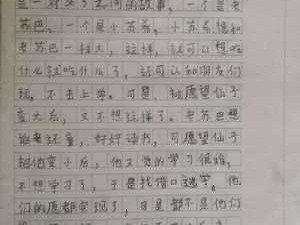 是一对父子之间的故事，一个是老
苏巴，一个是小苏希，小苏希想和
老苏巴一样大，这样，就可以想吃
什么就吃什么了，还可以和朋友们
玩，不去上学。可是，被愿望仙子
变大后，又不想这样了。老苏巴想
返老还童，好好读书，可愿望仙子
把他变小后，他又觉的学习很难，
不想学习了，于是找借口逃学。他
们的愿都实现了，可是都不是他们